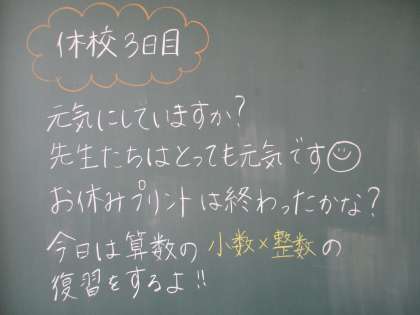 休校3日目
元気にしていますか?
先生たちはとっても元気です☺
お休みプリントは終わったかな?
今日は算数の 小数×整数の
復習をするよ!!